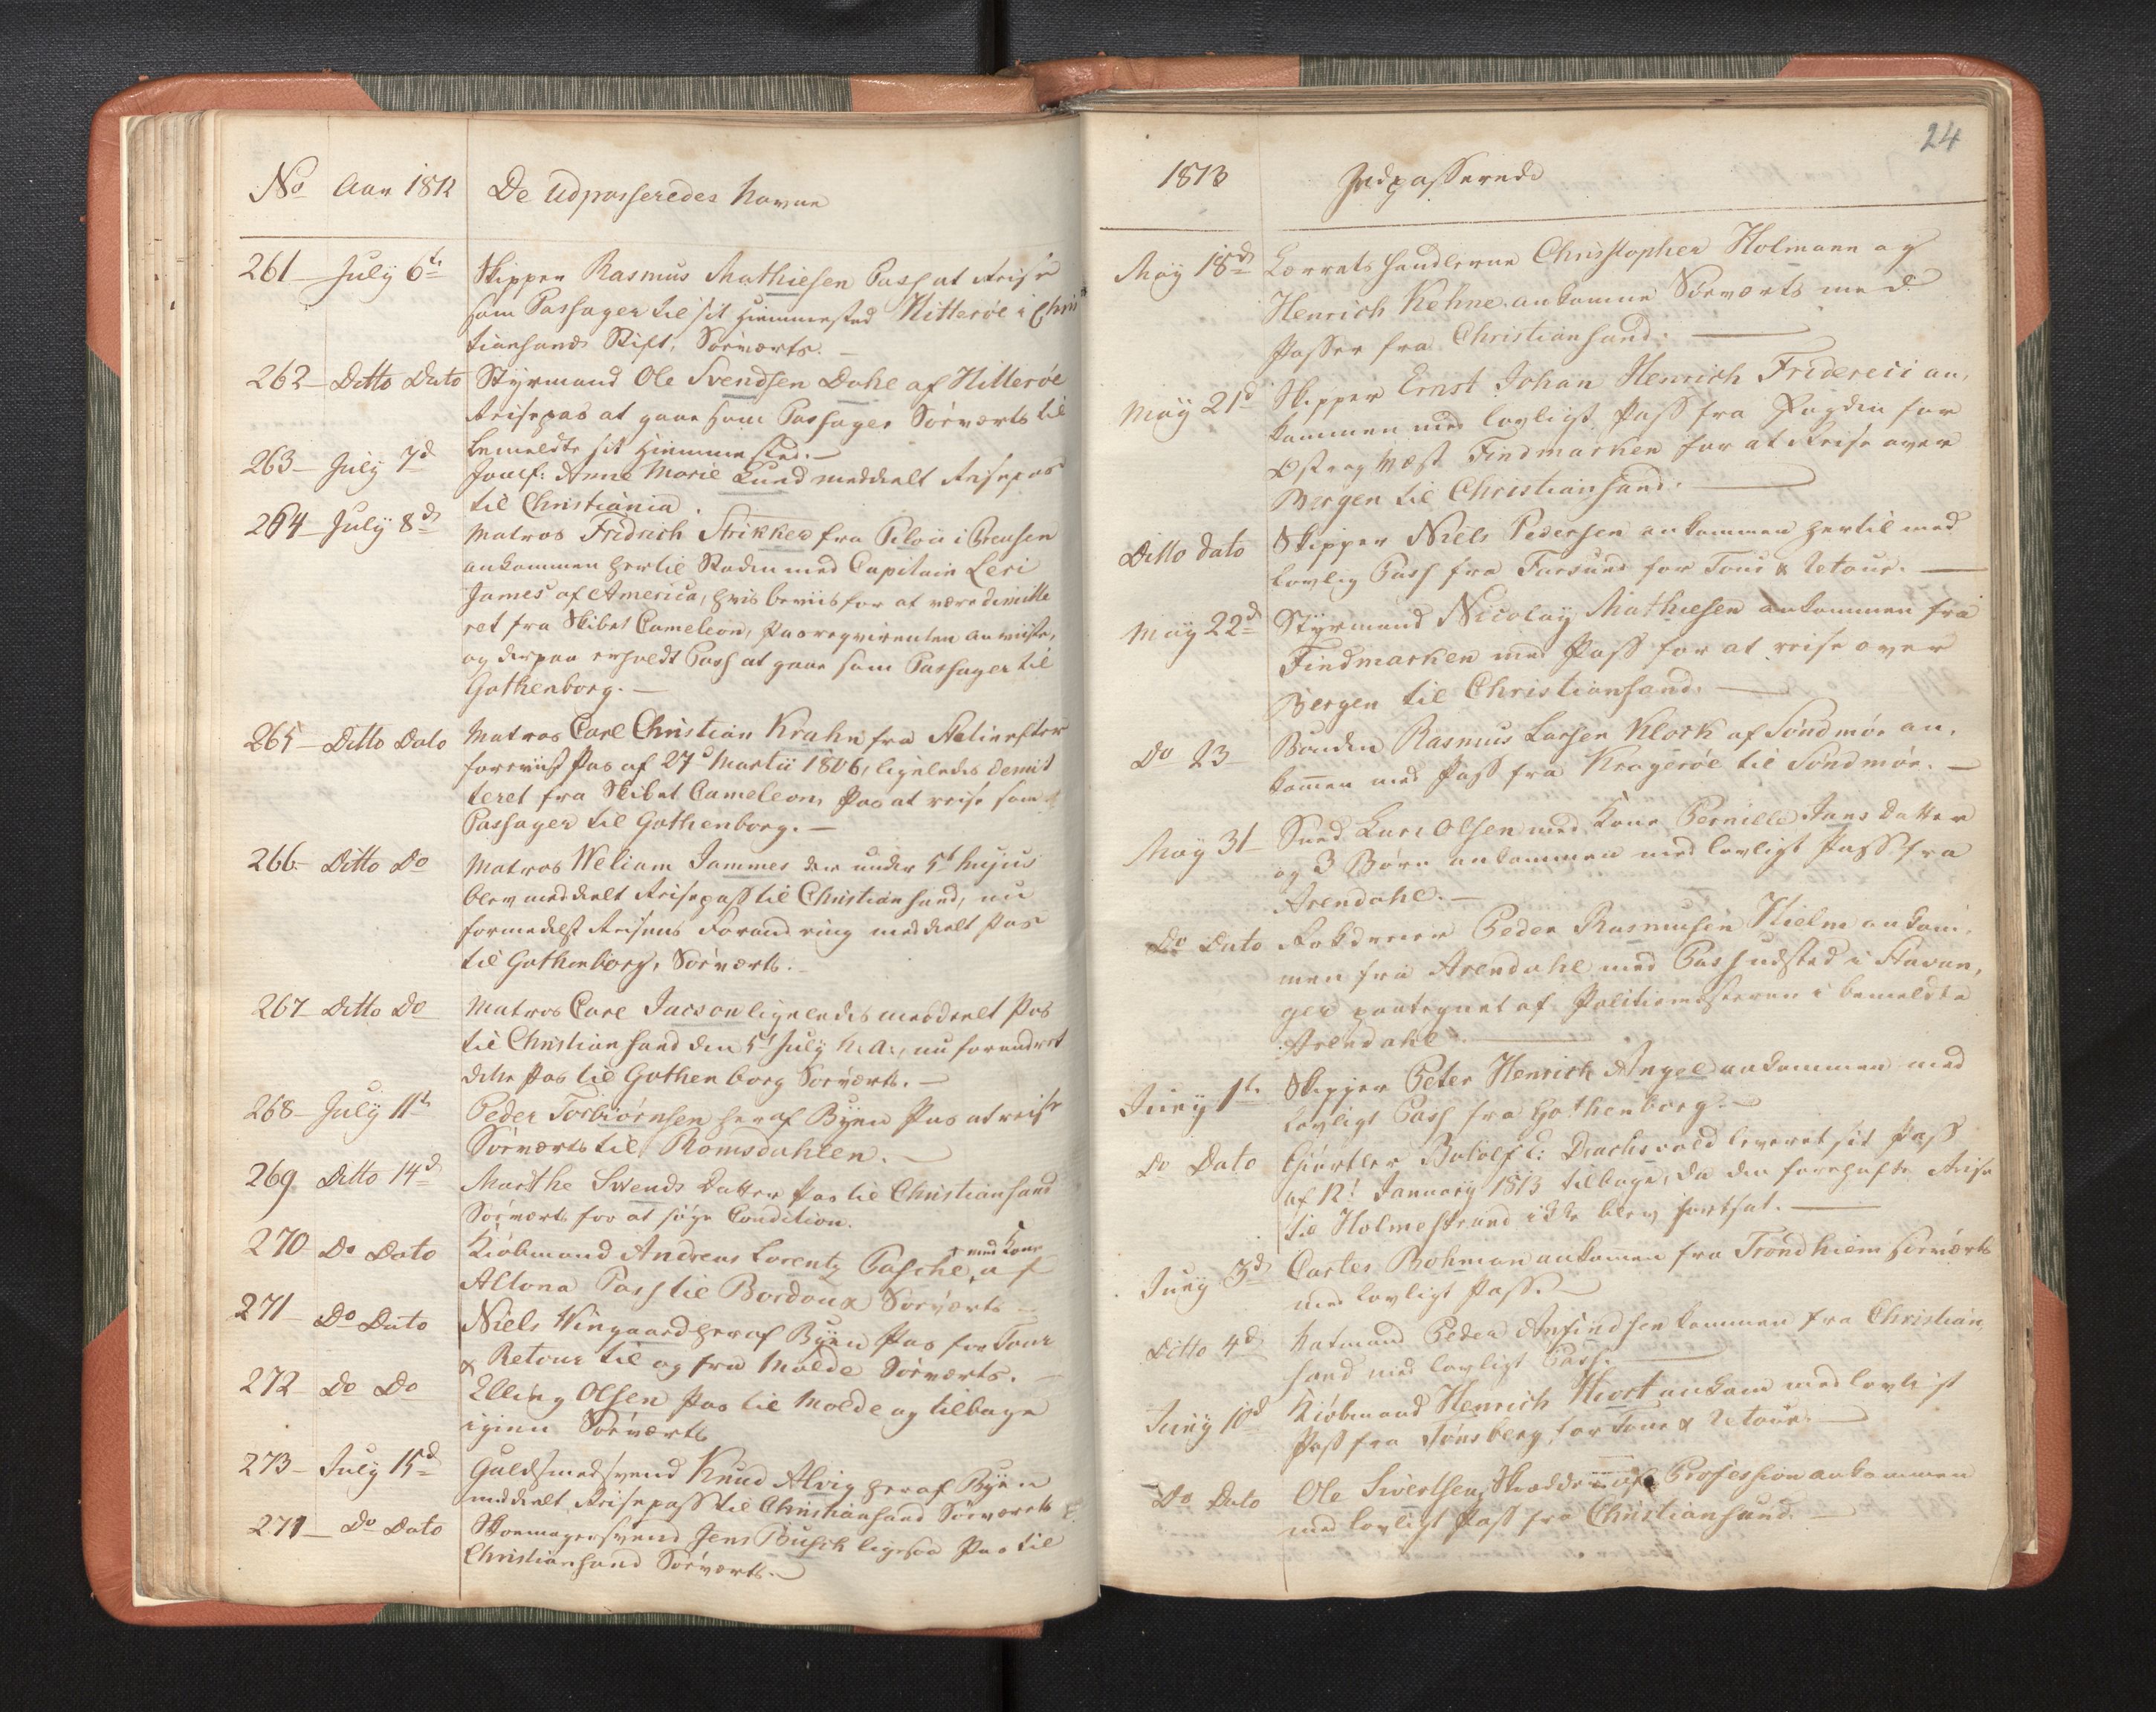 No Aar 1812 De Udpasseredes Navne
261 July 6te Skipper Rasmus Mathiesen Pass at Reise
som Passager til sit Hiemmested Hitterøe i Chris
tiansands Stift, Sørværts.
262 Ditto Dato Styrmand Ole Svendsen Dahl af Hitterøe
Reisepas at gaae som Passager Sørværts til
bemeldte sit Hiemmested.
263 July 7d Jomf: Anne Marie Lund meddeelt Reisepas
til Christiania.
264 July 8d Matros Fridrich Strikker fra Pilau i Preusen
ankommen hertil Staden med Capitain Leri
James af America, hvis beviis for at være dimitte
ret fra Skibet Cameleon, Pasreqvirenten anviiste,
og derpaa erholdt Pass at gaae som Passager til
Gothenborg.
265 Ditto Dato Matros Carl Christian Krahn fra Stetin efter
foreviist Pas af 27d Martii 1806, ligeledes demit
teret fra Skibet Cameleon, Pas at reise som
Passager til Gothenborg.
266 Ditto Do Matros Weliam Jammes der under 5t hujus
blev meddeelt Reisepass til Christiansand, nu
formedelst Reisens Forandring meddeelt Pas
til Gothenborg, Sørværts.
267 Ditto Do Matros Carl Jacson ligeledes meddeelt Pas
til Christiansand den 5t July h. a., nu forandret
dette Pas til Gothenborg Sørværts.
268 July 11te Peder Torbiørnsen her af Byen Pas at reise
Sørværts til Romsdahlen.
269 Ditto 14d Marthe Svends Datter Pas til Christiansand
Sørværts for at søge Condition.
270 Do Dato Kiøbmand Andreas Lorentz Pasche, med Kone af
Altona Pass til Bordoux Sørværts
271 Do Dato Niels Wingaard her af Byen Pas for Tour
& Retour til og fra Molde Sørværts.
272 Do Do Elling Olsen Pas til Molde og tilbage
igien Sørværts
273 July 15d Guldsmedsvend Knud Alvig her af Byen
meddeelt Reisepass til Christiansand Sørværts
274 Do Dato Skomagersvend Jens Busch ligesaa Pas til
Christiansand Sørværts.
24
1813 Indpasserede
May 18d Corvatshandlerne Christopher Holmann og
Henrich Kehne ankomne Sørværts med
Passer fra Christiansand.
May 21d Skipper Ernst Johan Henrich Fridereii an,
kommen med lovligt Pass fra Fogden for
Øst og Vest Findmarken for at Reise over
Bergen til Christiansand.
Ditto dato Skipper Niels Pedersen ankommen hertil med
lovlig Pass fra Farsund for Tour & Retour.
May 22d Styrmand Nicolay Mathiesen ankommen fra
Findmarken med Pass for at reise over
Bergen til Christiansand.
Do 23 Bonden Rasmus Larsen Klock af Søndmør an,
kommen med Pass fra Kragerøe til Søndmør.
May 31 Lars Olsen med Kone Pernille Jens Datter
og 3 Børn ankommen med lovligt Pass fra
Arendahl.
Do Dato Peder Rasmusen Hielm ankom,
men fra Arendahl med Pass udsted i Stavan,
ger paategnet af Politiemesteren i bemeldte
Arendahl.
Juny 1te Skipper Peter Henrich Angel ankommen med
lovligt Pass fra Gothenborg.
Do Dato Giørtler Botolf C: Drachsvold leveret sit Pass
af 12t January 1813 tilbage, da den forehafte Reise
til Holmestrand ikke blev fortsat.
Juny 3d Carles Bohman ankommen fra Trondhiem hervært
med lovligt Pass.
Ditto 4d Peder Anfindsen kommen fra Christian,
sand med lovligt Pass.
Juny 10d Kiøbmand Henrich Hiort ankom med lovligt
Pass fra Tønsberg for Tour & Retour.
Do Dato Ole Siverlsen, Skrædder af Profession ankommen
med lovligt Pass fra Christiansund.